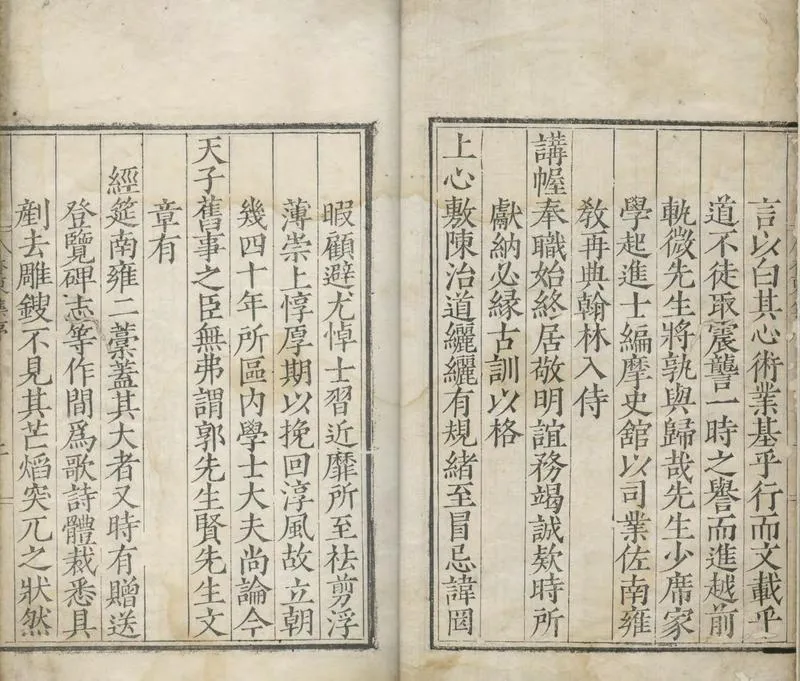 言以白其心術業基乎行而文載乎
道不徒取震讋一時之譽而進越前
軌微先生將孰與歸哉先生少席家
學起進士編摩史舘以司業佐南雍
敎再典翰林入侍
講幄奉職始終居敬明誼務竭誠欵時所
獻納必縁古訓以格
上心敷陳治道纚纚有規緒至冒忌諱罔
暇顧避尤悼士習近靡所至祛剪浮
薄崇上惇厚期以挽回淳風故立朝
幾四十年所區内學士大夫尚論今
天子舊事之臣無弗謂郭先生賢先生文
章有
經筵南雍二藁蓋其大者又時有贈送
登覽碑志等作間爲歌詩體裁悉具
剷去雕鎪不見其芒熖突兀之狀然